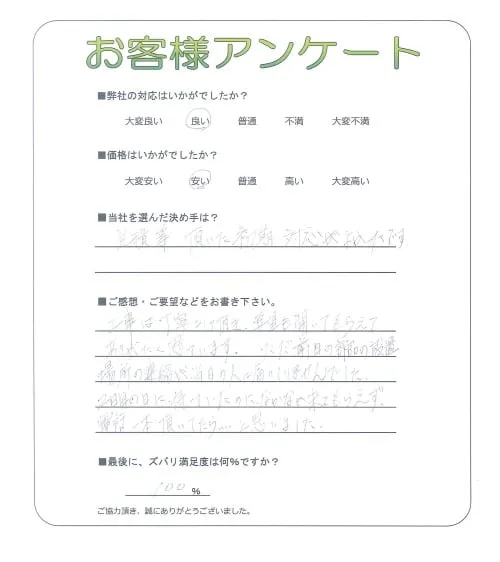 お客様アンケート
■弊社の対応はいかがでしたか？
大変良い 良い 普通 不満 大変不満
■価格はいかがでしたか？
大変安い 安い 普通 高い 大変高い
■当社を選んだ決め手は？
頂いた 対応がよかったです
■ご感想・ご要望などをお書き下さい。
工事は丁寧にして頂き、意見も聞いてもらえて
ありがたく思っています。ただ前日の の設置
場所の が当日の人に届いていませんでした。
2日目の日に、待っていたのになかなか来てもらえず、
電話一本頂いてたら… と思いました。
■最後に、ズバリ満足度は何%ですか？
100 %
ご協力頂き、誠にありがとうございました。